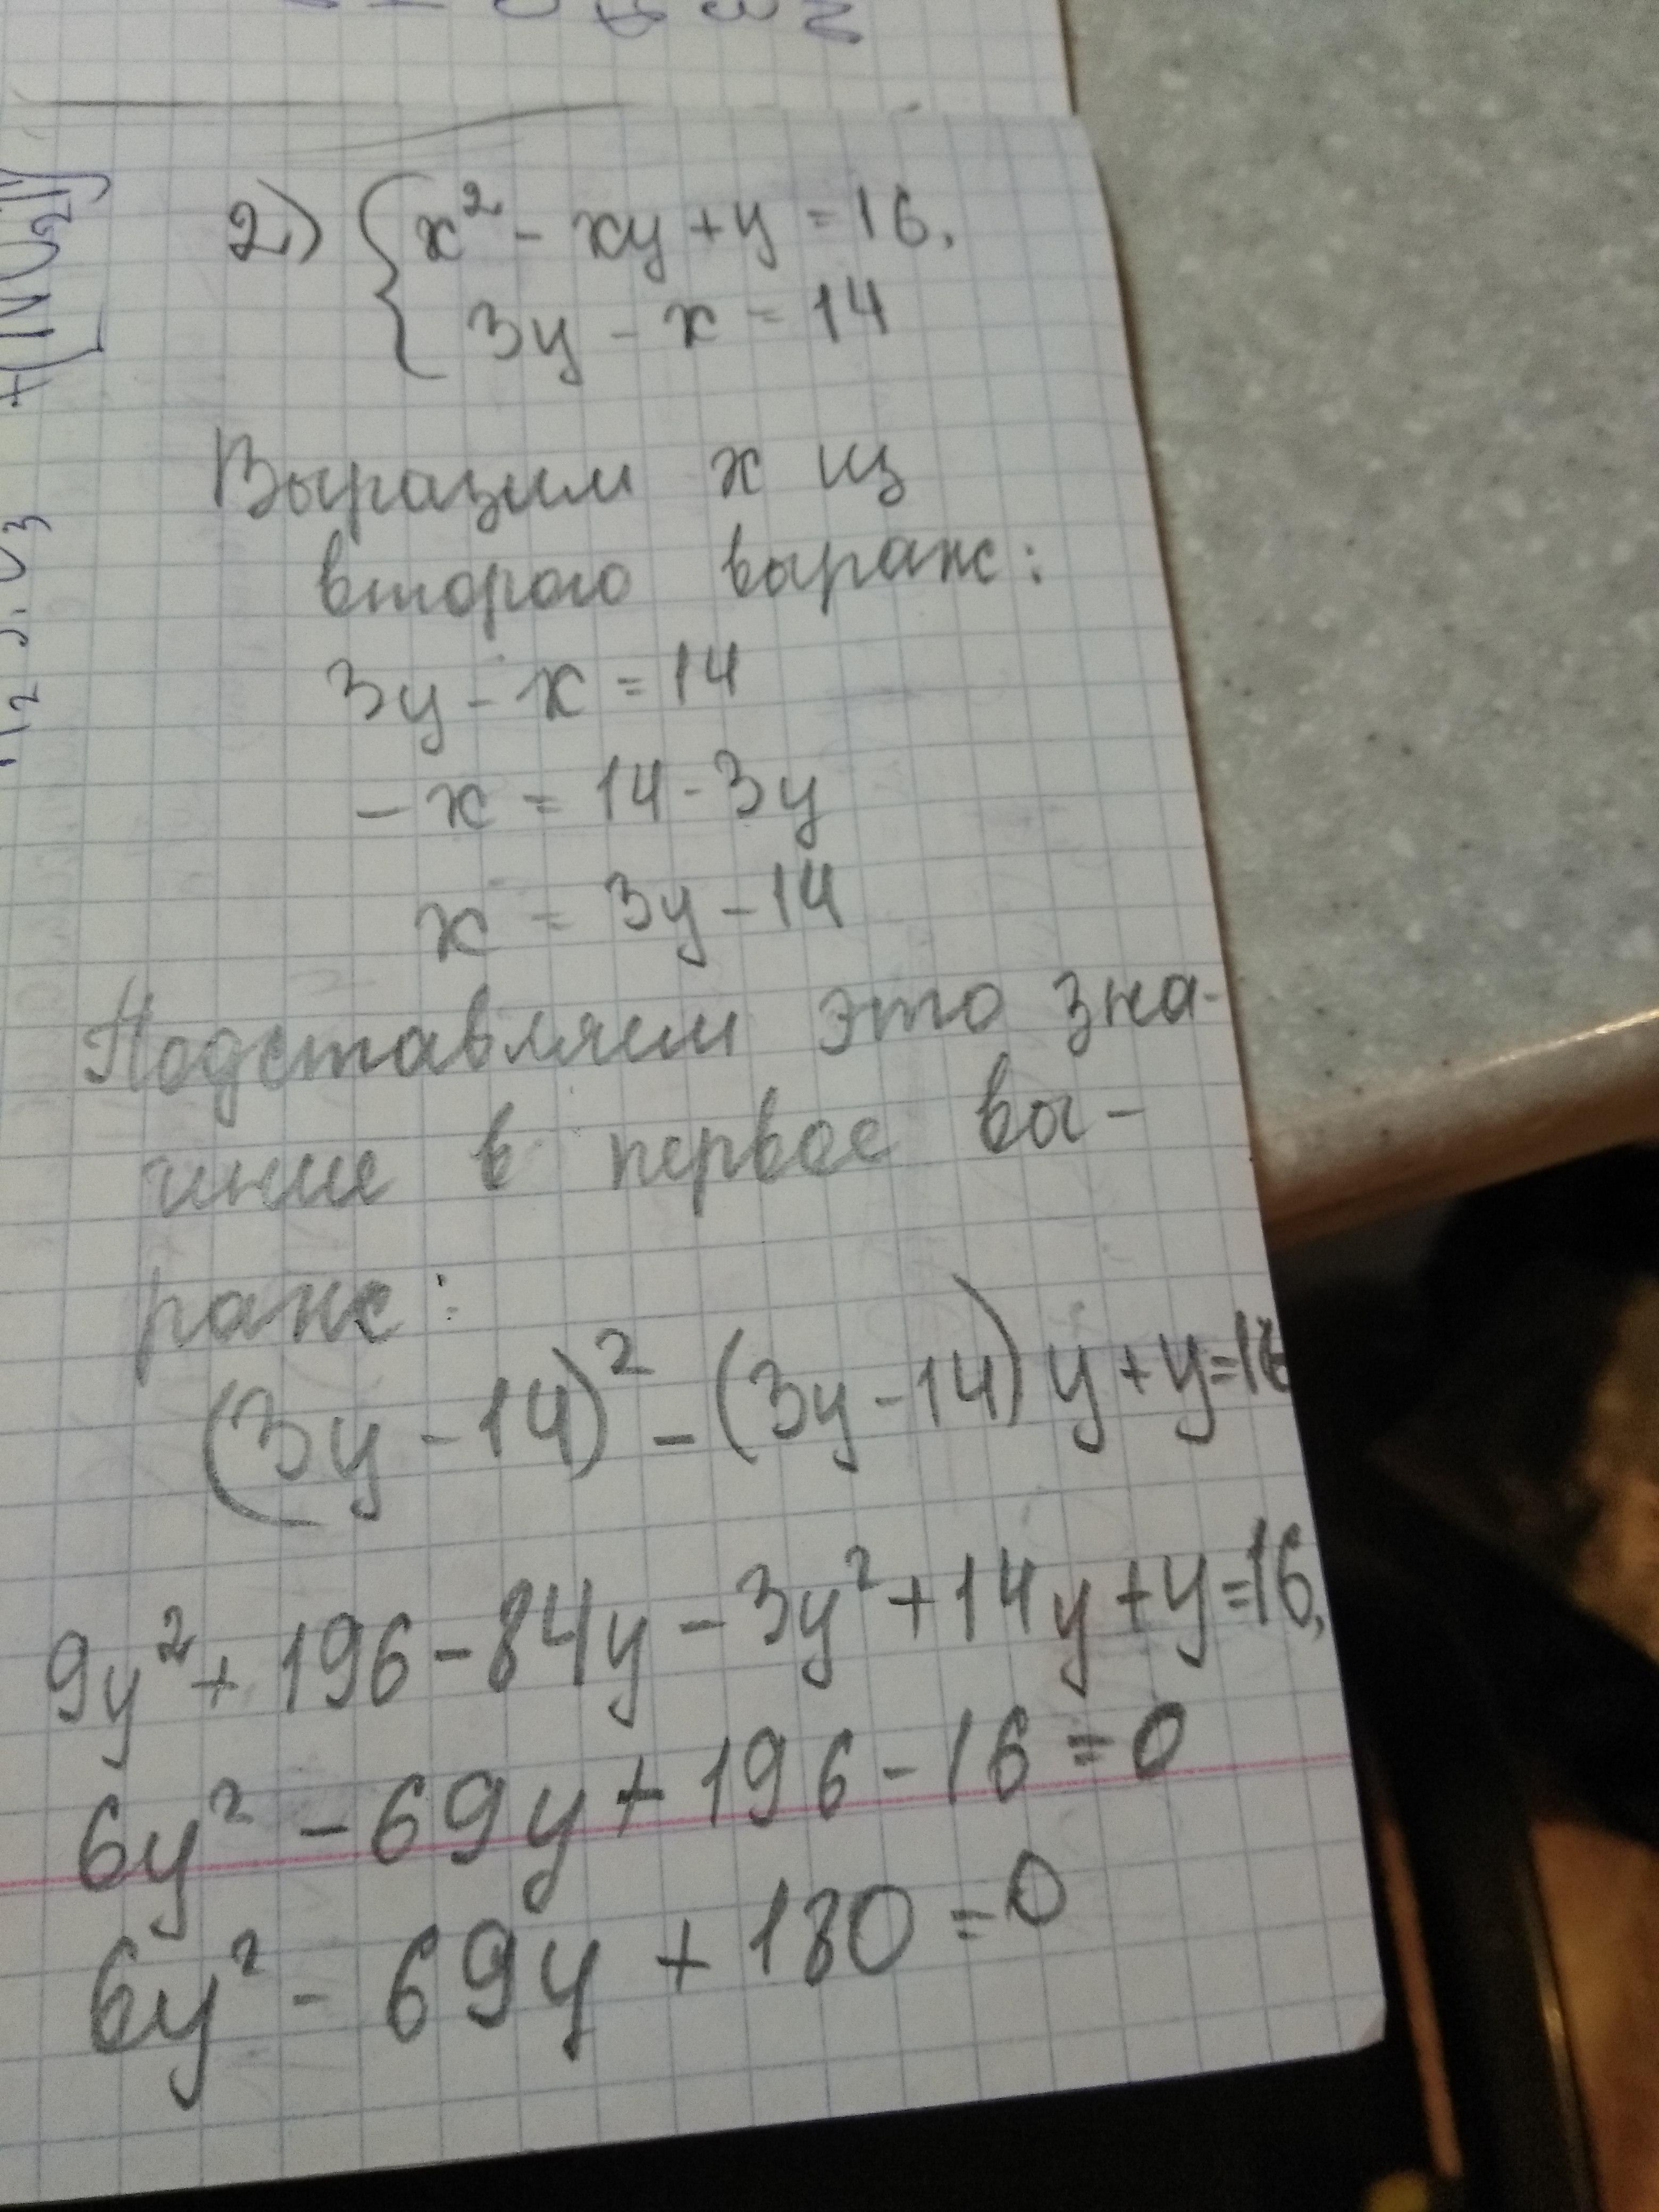 2) { x² - xy + y = 16,
3y - x = 14
Выразим x из
второго выраж:
3y - x = 14
- x = 14 - 3y
x = 3y - 14
Подставляем это зна-
чние в первое вы-
раже:
(3y - 14)² - (3y - 14) y + y = 16
9y² + 196 - 84y - 3y² + 14y + y = 16,
6y² - 69y + 196 - 16 = 0
6y² - 69y + 180 = 0